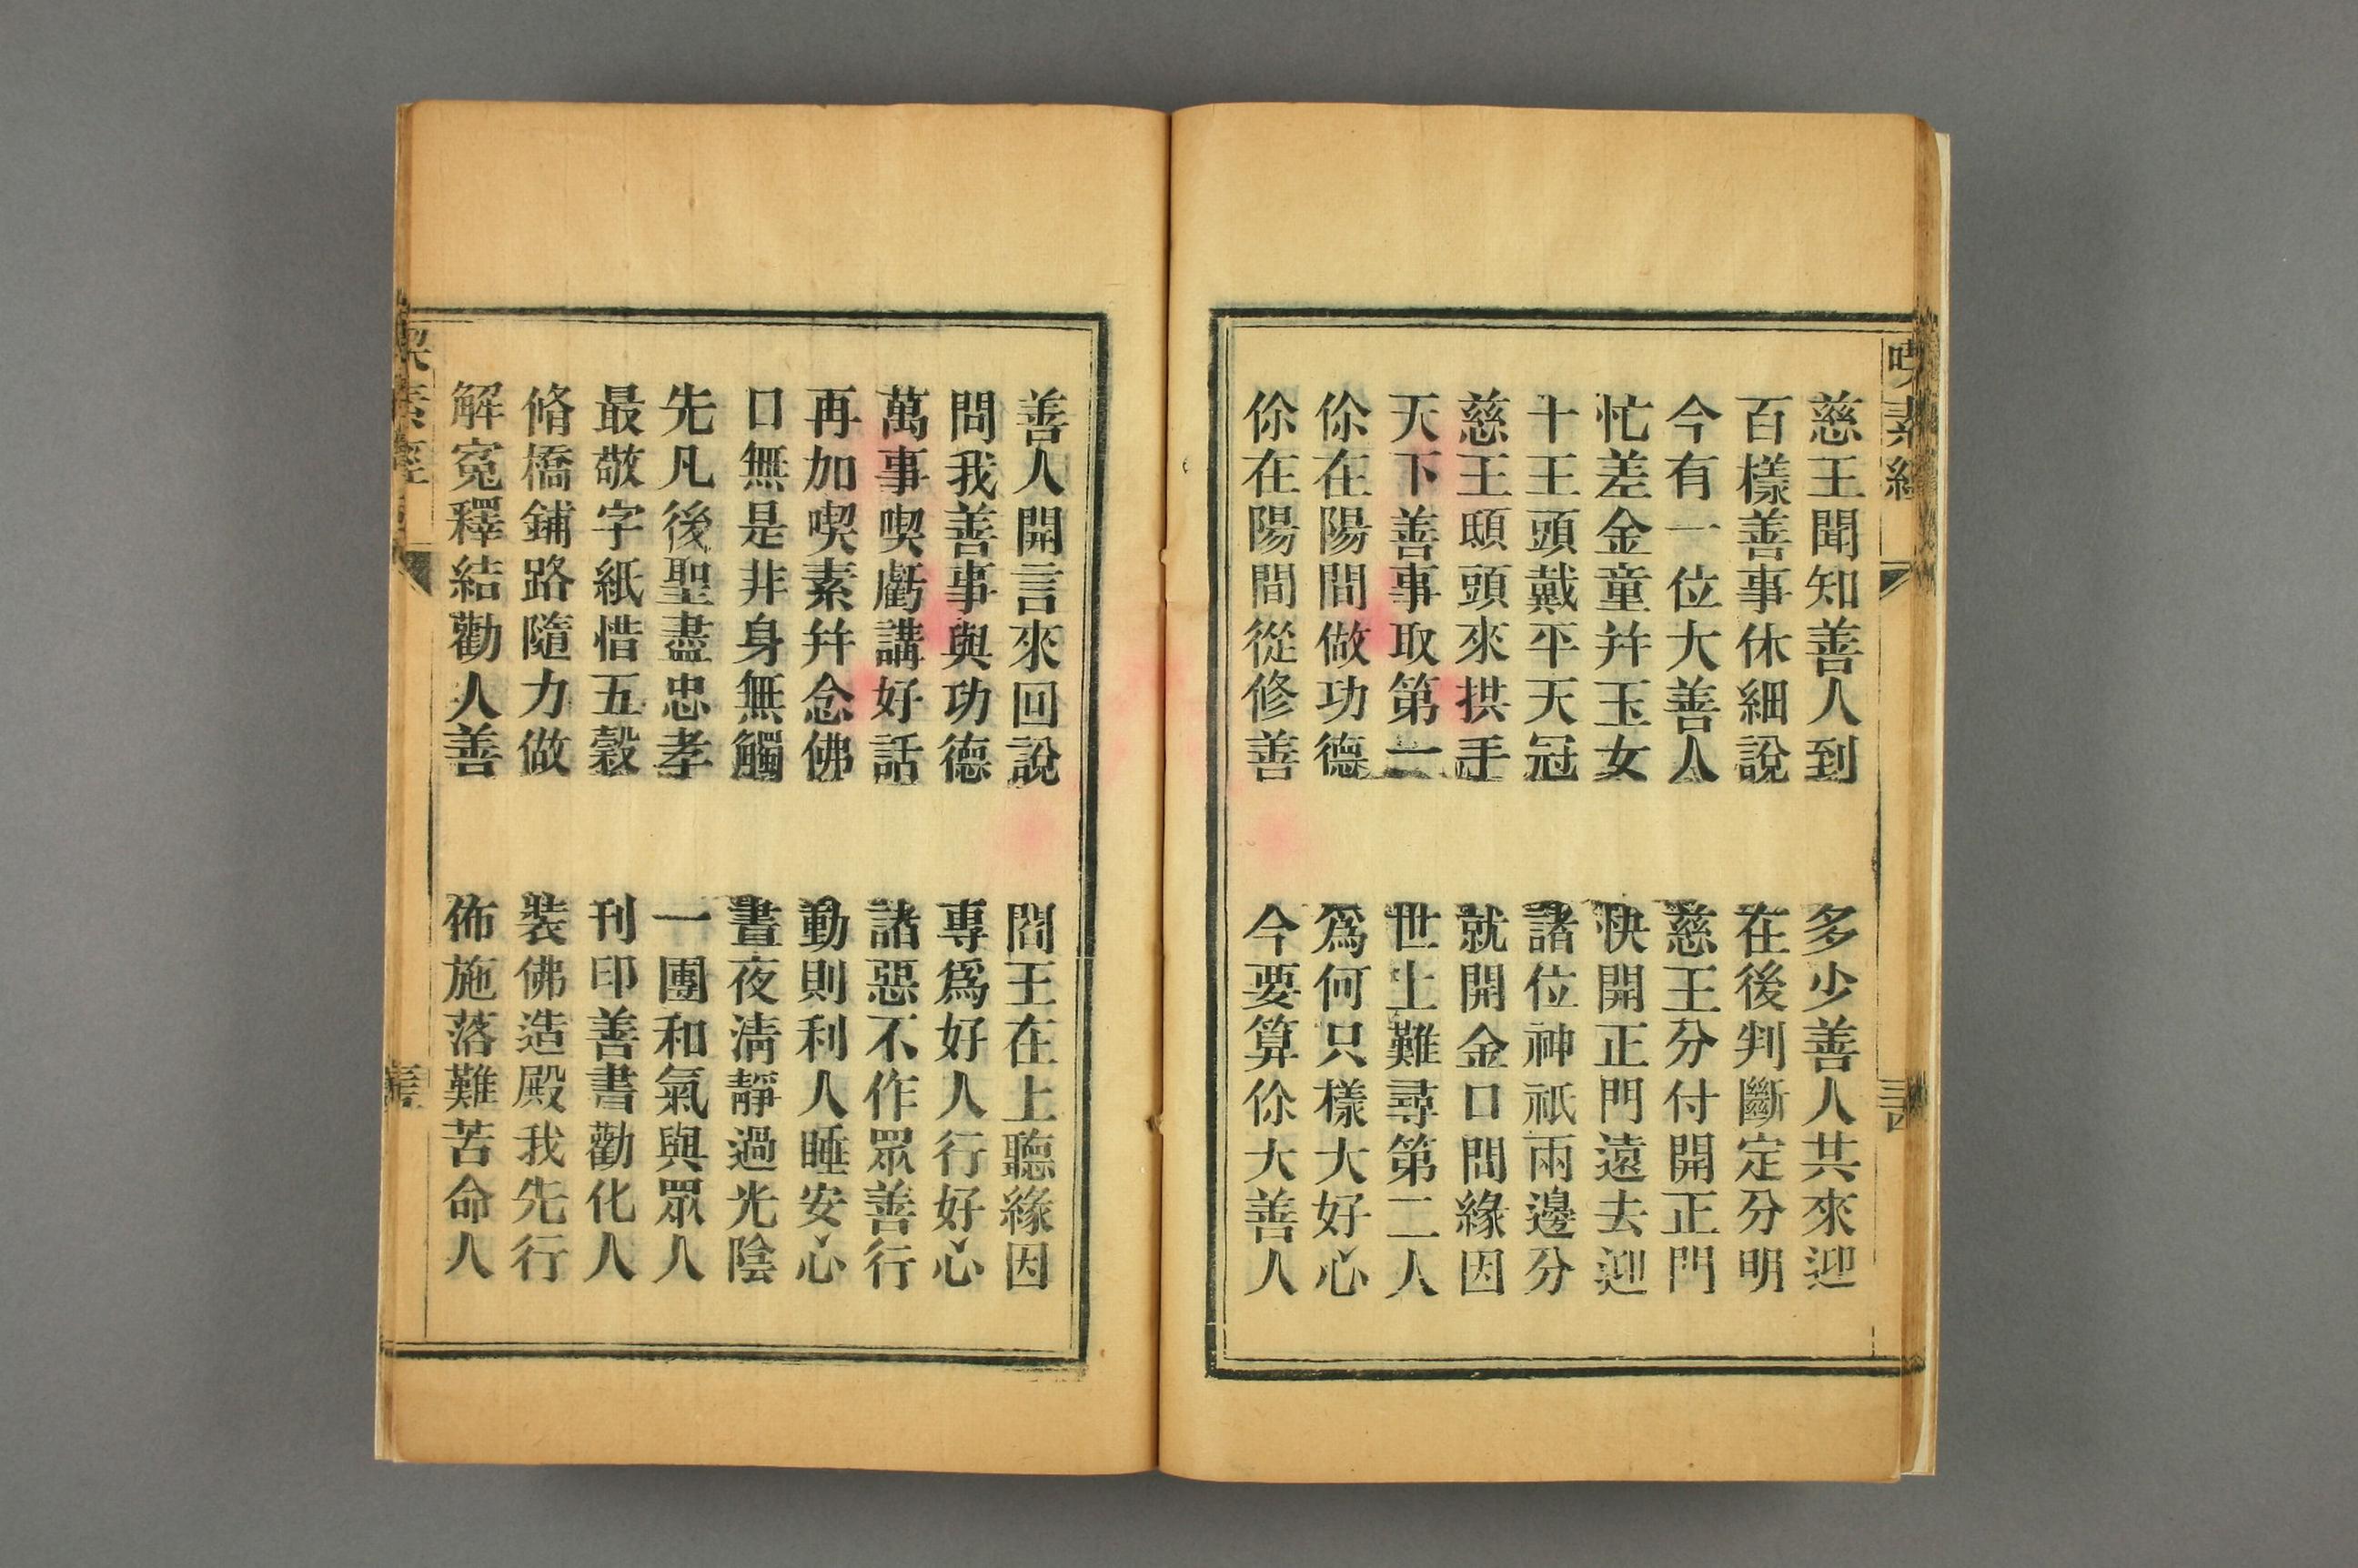 慈王聞知善人到　多少善人共來迎
百樣善事休細說　在後判斷定分明
今有一位大善人　慈王分付開正門
忙差金童幷玉女　快開正門遠去迎
十王頭戴平天冠　諸位神祇兩邊分
慈王頤頭來拱手　就開金口問緣因
天下善事取第一　世上難尋第二人
伱在陽間做功德　爲何只樣大好心
伱在陽間從修善　今要算伱大善人
善人開言來回說　閻王在上聽緣因
問我善事與功德　專爲好人行好心
萬事喫虧講好話　諸惡不作眾善行
再加喫素幷念佛　動則利人睡安心
口無是非身無觸　晝夜淸靜過光陰
先凡後聖盡忠孝　一團和氣與眾人
最敬字紙惜五穀　刊印善書勸化人
脩橋鋪路隨力做　裝佛造殿我先行
解寃釋結勸人善　佈施落難苦命人